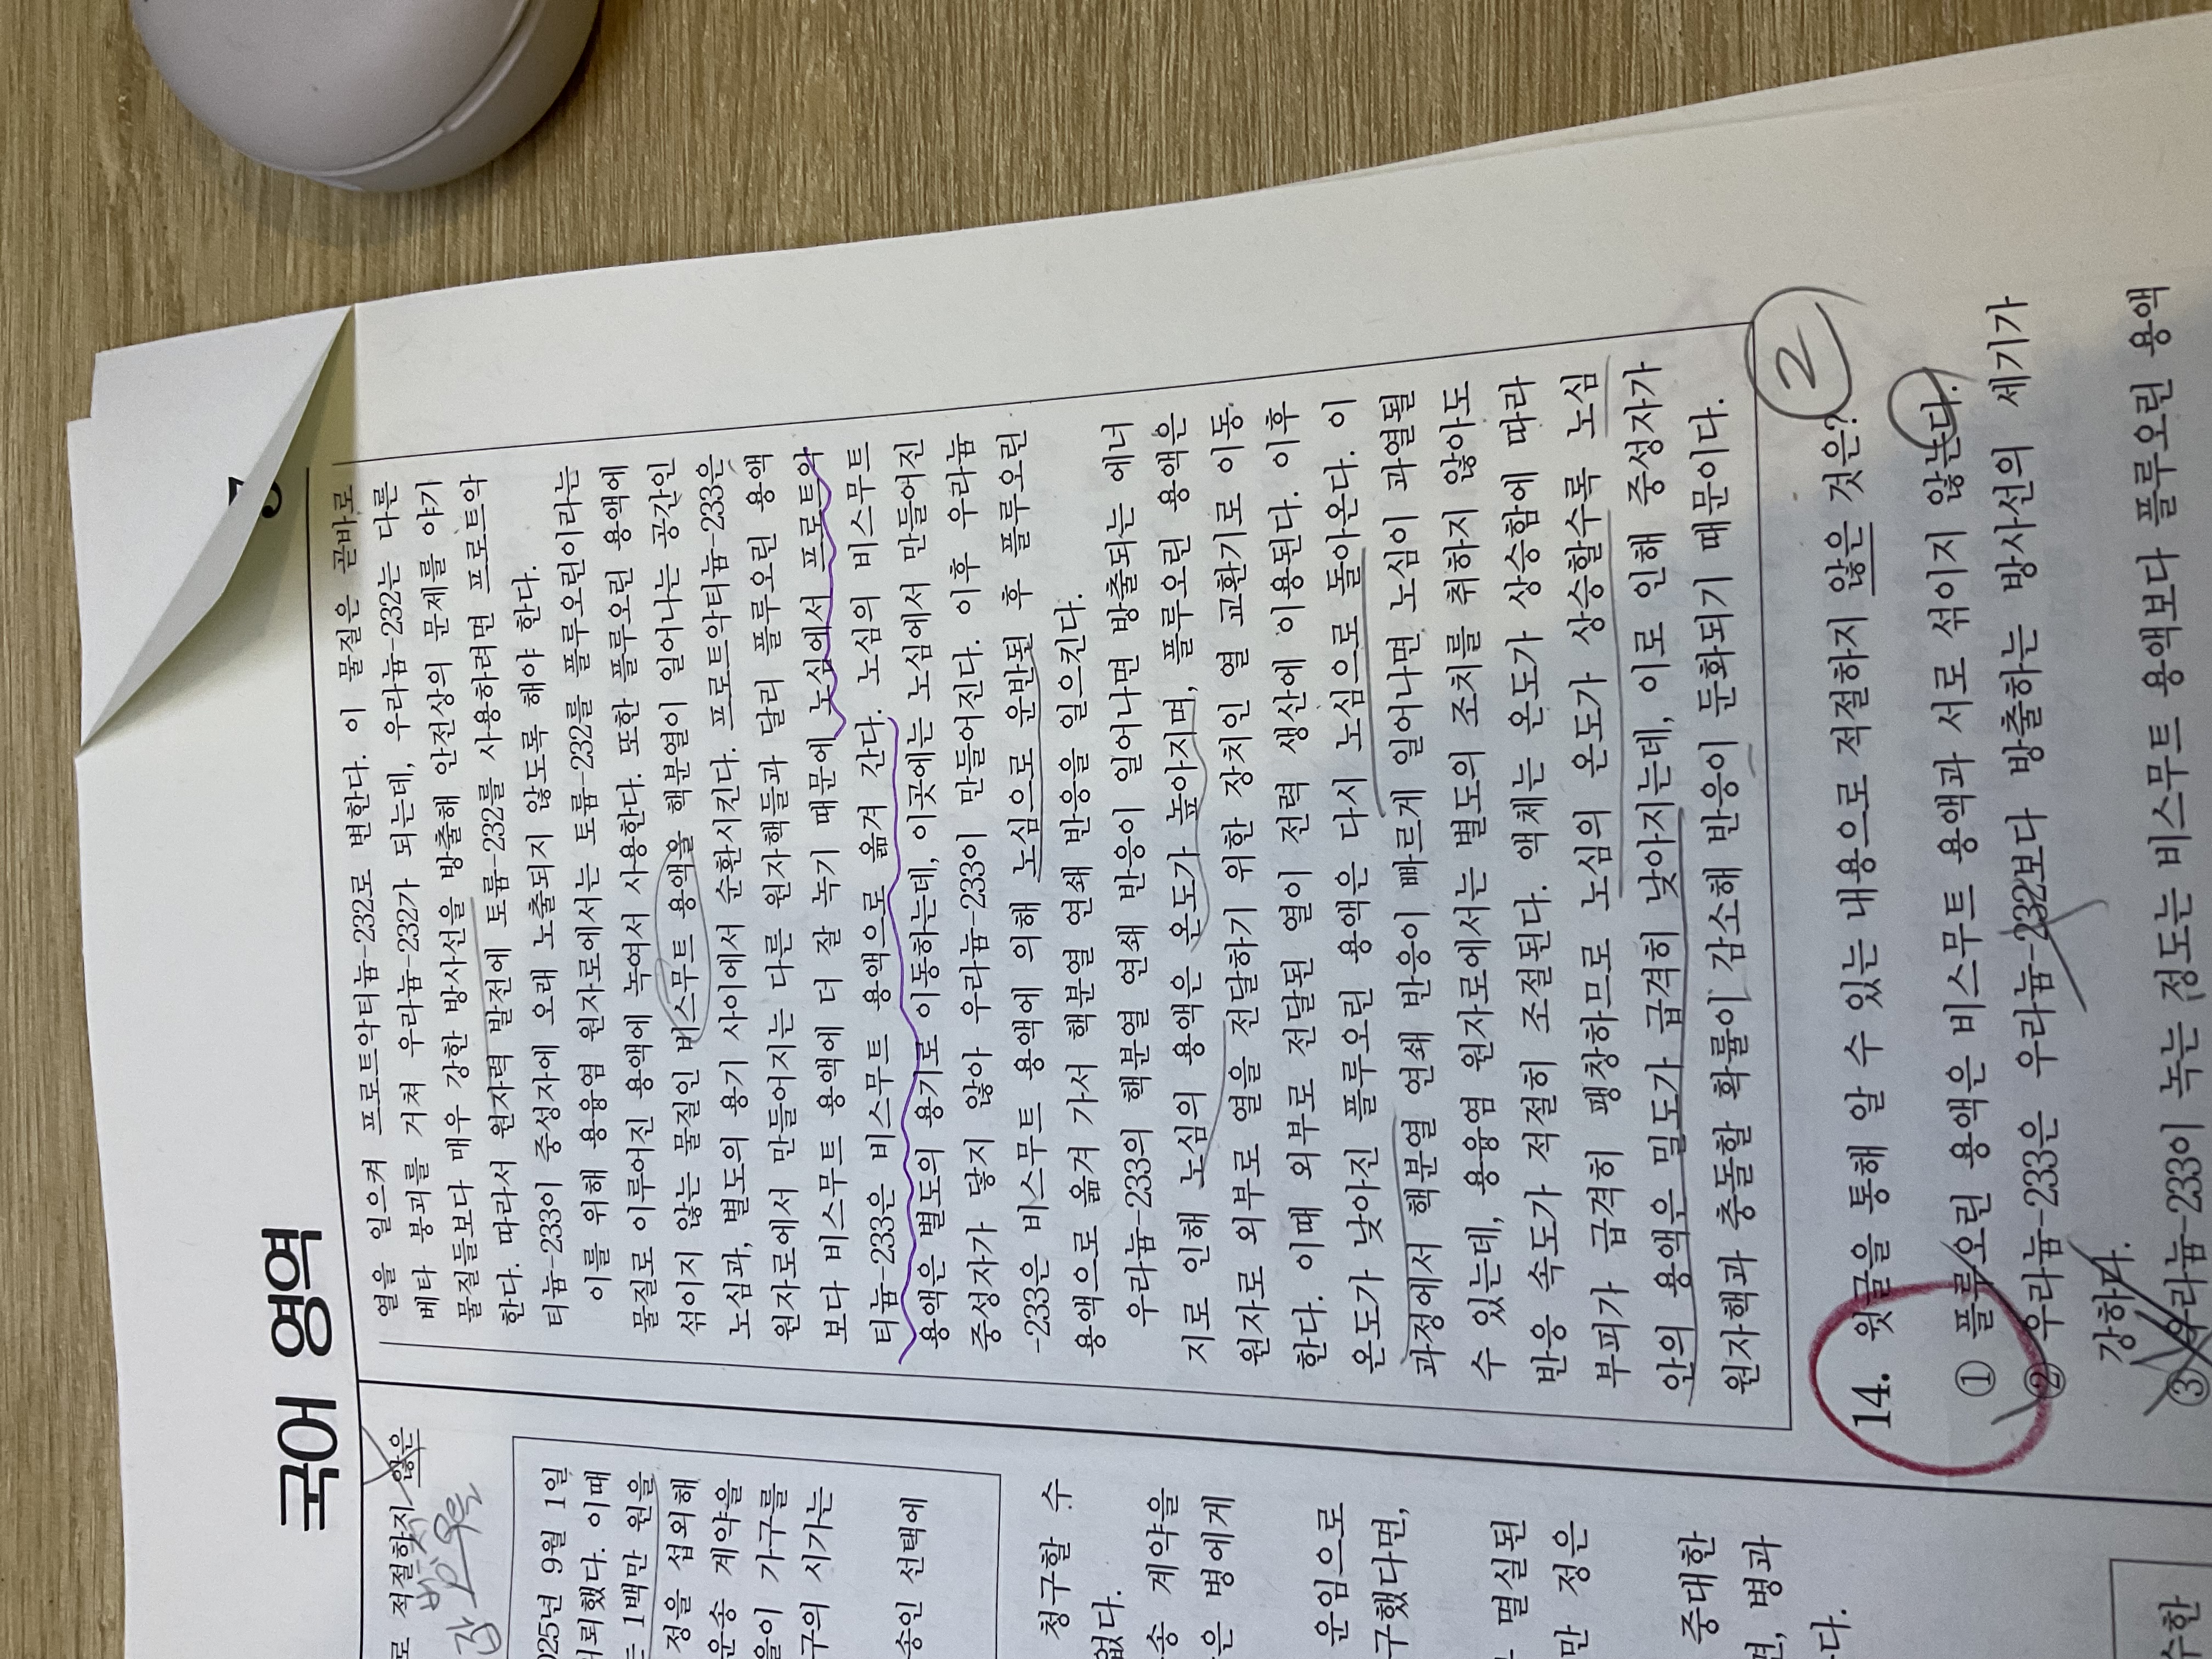 국어 영역
로 적절하지 않은
2025년 9월 1일
의뢰했다. 이때
1백만 원을
정을 섭외해
운송 계약을
을이 가구를
구의 시기는
송인 선택에
청구할 수
없다.
송 계약을
은 병에게
운임으로
구했다면,
멸실된
만 정은
중대한
면, 병과
다.
수한
열을 일으켜 프로트악티늄-232로 변한다. 이 물질은 곧바로
베타 붕괴를 거쳐 우라늄-232가 되는데, 우라늄-232는 다른
물질들보다 매우 강한 방사선을 방출해 안전상의 문제를 야기
한다. 따라서 원자력 발전에 토륨-232를 사용하려면 프로트악
티늄-233이 중성자에 오래 노출되지 않도록 해야 한다.
이를 위해 용융염 원자로에서는 토륨-232를 플루오린이라는
물질로 이루어진 용액에 녹여서 사용한다. 또한 플루오린 용액에
섞이지 않는 물질인 비스무트 용액을 핵분열이 일어나는 공간인
노심과, 별도의 용기 사이에서 순환시킨다. 프로트악티늄-233은
원자로에서 만들어지는 다른 원자핵들과 달리 플루오린 용액
보다 비스무트 용액에 더 잘 녹기 때문에 노심에서 프로트악
티늄-233은 비스무트 용액으로 옮겨 간다. 노심의 비스무트
용액은 별도의 용기로 이동하는데, 이곳에는 노심에서 만들어진
중성자가 닿지 않아 우라늄-233이 만들어진다. 이후 우라늄
-233은 비스무트 용액에 의해 노심으로 운반된 후 플루오린
용액으로 옮겨 가서 핵분열 연쇄 반응을 일으킨다.
우라늄-233의 핵분열 연쇄 반응이 일어나면 방출되는 에너
지로 인해 노심의 용액은 온도가 높아지며, 플루오린 용액은
원자로 외부로 열을 전달하기 위한 장치인 열 교환기로 이동
한다. 이때 외부로 전달된 열이 전력 생산에 이용된다. 이후
온도가 낮아진 플루오린 용액은 다시 노심으로 돌아온다. 이
과정에서 핵분열 연쇄 반응이 빠르게 일어나면 노심이 과열될
수 있는데, 용융염 원자로에서는 별도의 조치를 취하지 않아도
반응 속도가 적절히 조절된다. 액체는 온도가 상승함에 따라
부피가 급격히 팽창하므로 노심의 온도가 상승할수록 노심
안의 용액은 밀도가 급격히 낮아지는데, 이로 인해 중성자가
원자핵과 충돌할 확률이 감소해 반응이 둔화되기 때문이다.
2
14. 윗글을 통해 알 수 있는 내용으로 적절하지 않은 것은?
① 플루오린 용액은 비스무트 용액과 서로 섞이지 않는다.
② 우라늄-233은 우라늄-232보다 방출하는 방사선의 세기가
강하다.
③ 우라늄-233이 녹는 정도는 비스무트 용액보다 플루오린 용액